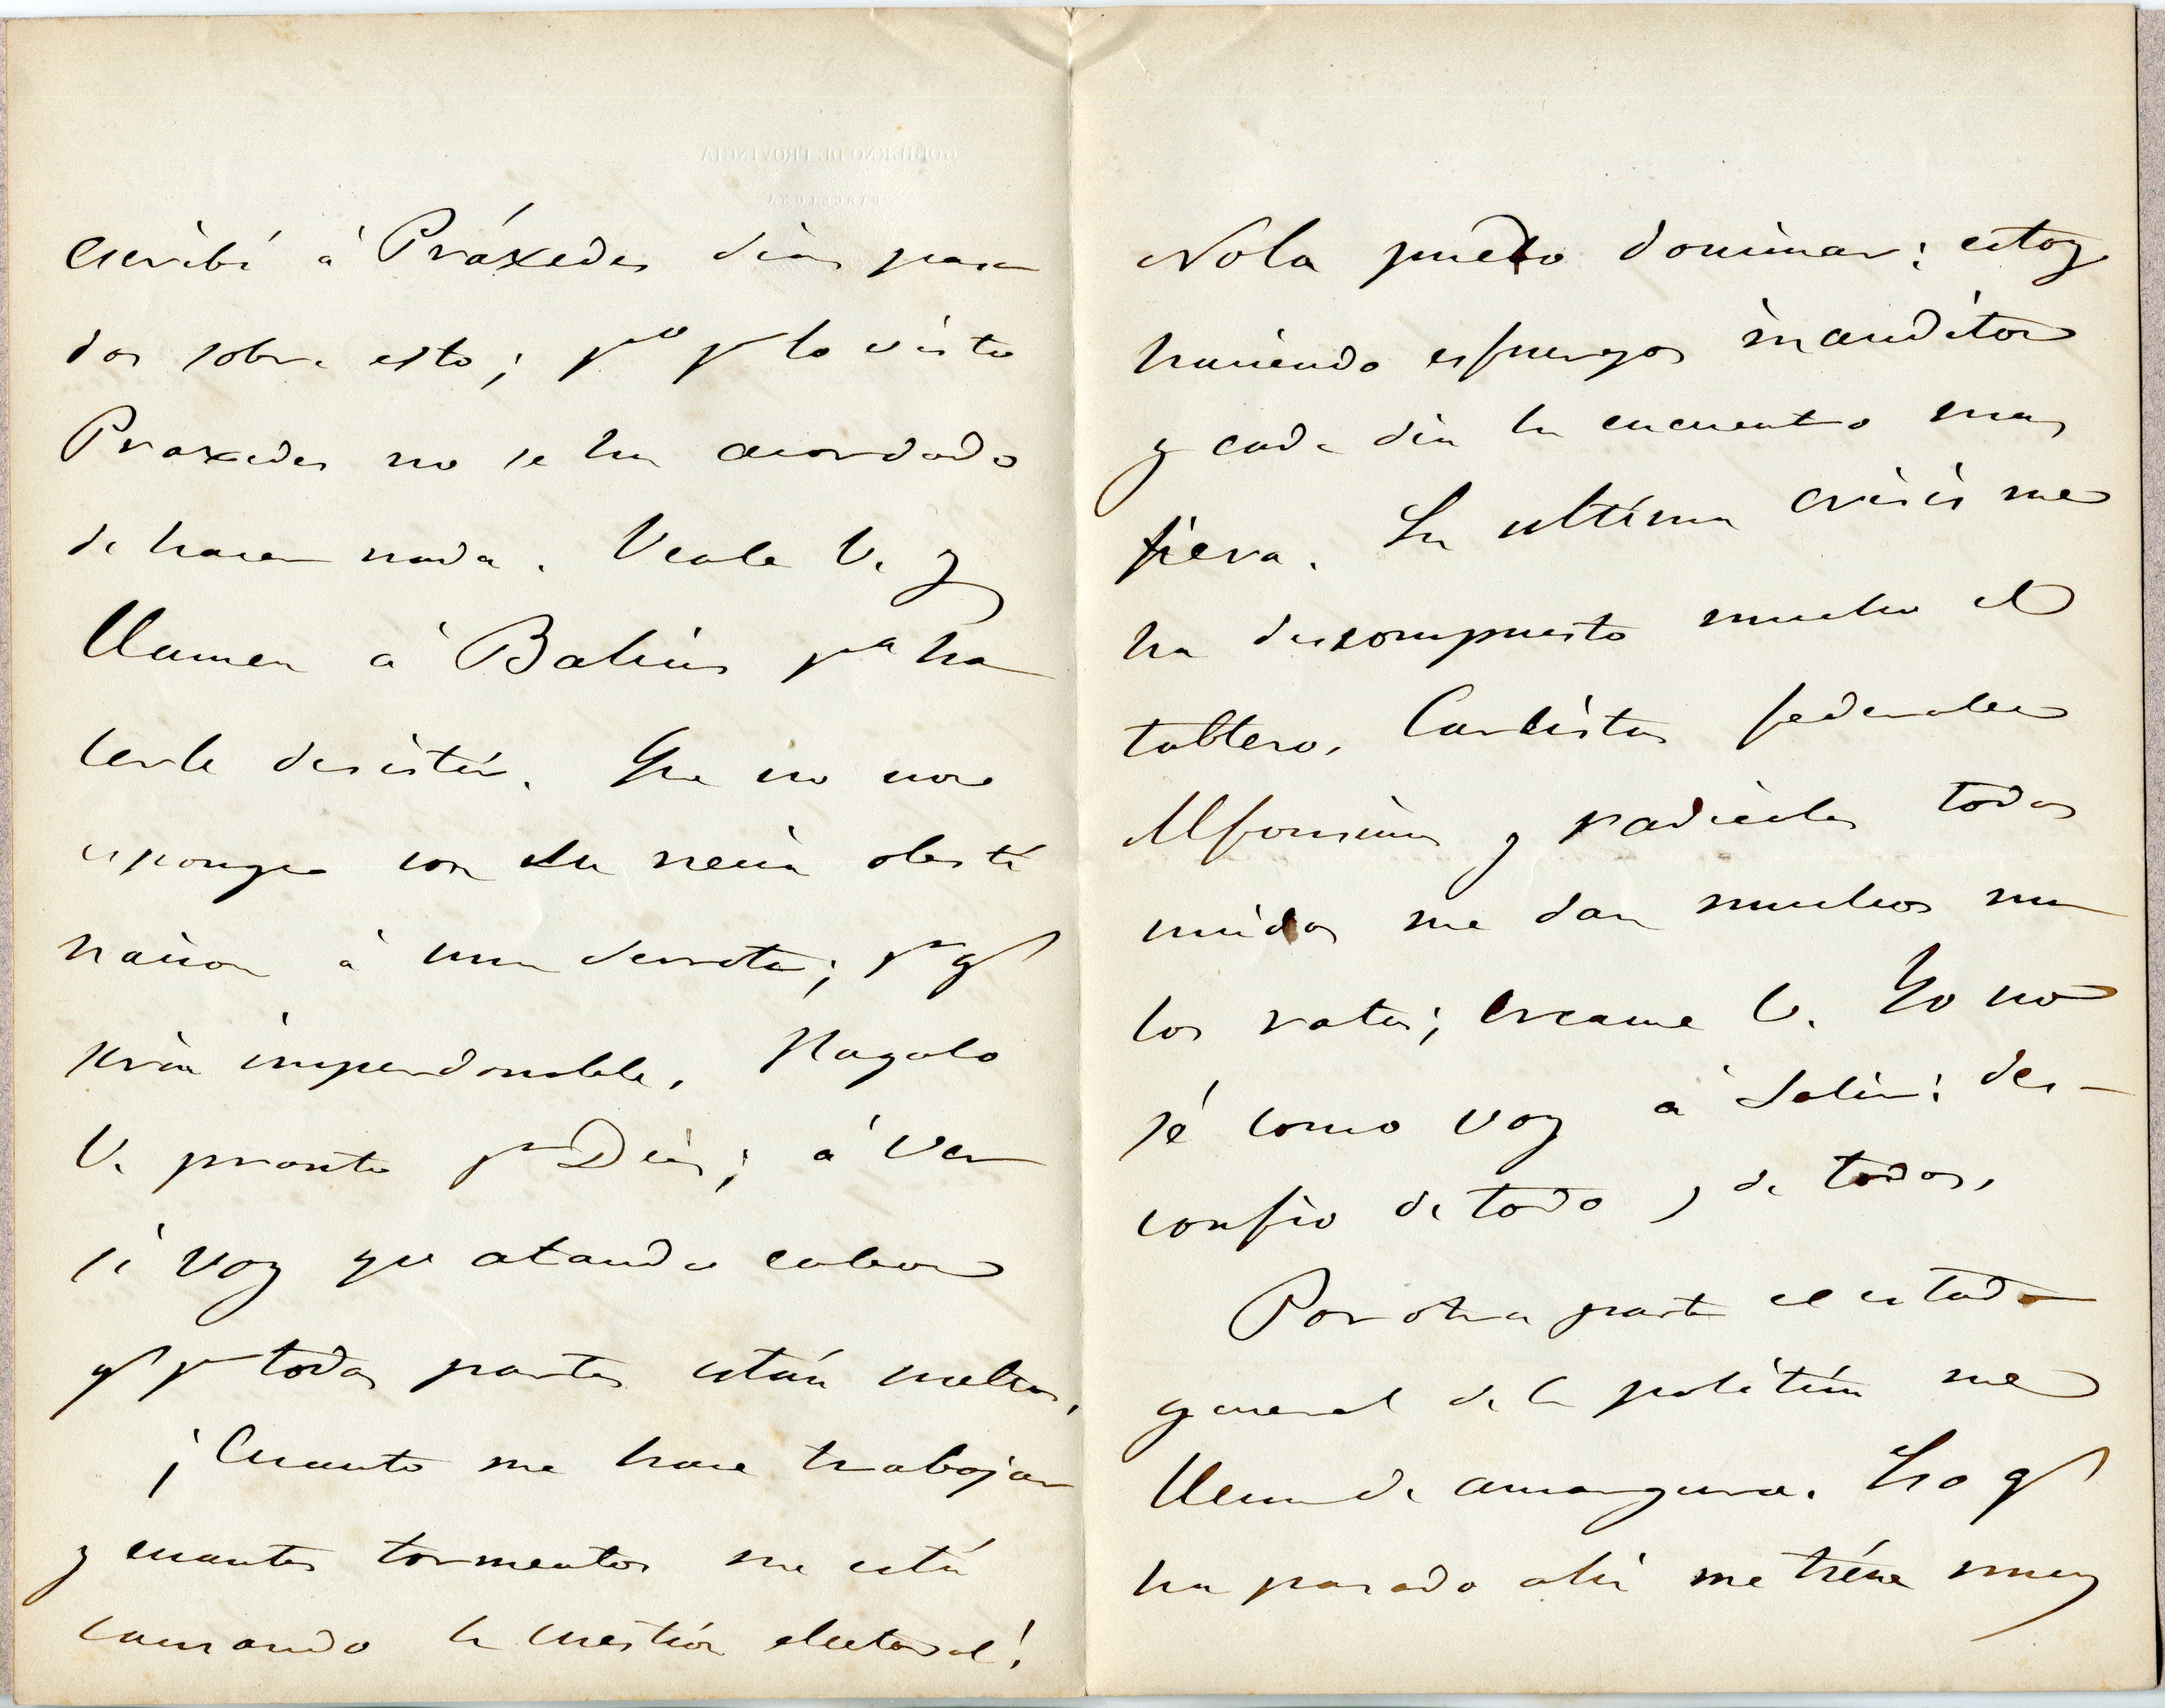 escribí á Práxedes dias pasa
dos sobre esto; pº pr lo visto
Praxedes no se ha acordado
de hacer nada. Veale V. y
llamen á Balius pª ha
cerle desistir. Que no nos
esponga con su necia obsti
nacion á una derrota; pr q
sería imperdonable. Hagalo
V. pronto pr Dios; á ver
si voy ya atando cabos
q pr todas partes están sueltos.
¡Cuanto me hace trabajar
y cuantos tormentos me está
causando la cuestión electoral!
No la puedo dominar: estoy
haciendo esfuerzos inauditos
y cada dia la encuentro mas
fiera. La ultima crisis me
ha descompuesto mucho el
tablero. Carlistas federales
Alfonsinos y radicales todos
unidos me dan muchos ma
los ratos; creame V. Yo no
sé como voy á salir: des-
confio de todo y de todos.
Por otra parte el estado
general de la política me
llena de amargura. Lo q
ha pasado ahí me tiene muy
GOBIERNO DE PROVINCIA
BARCELONA